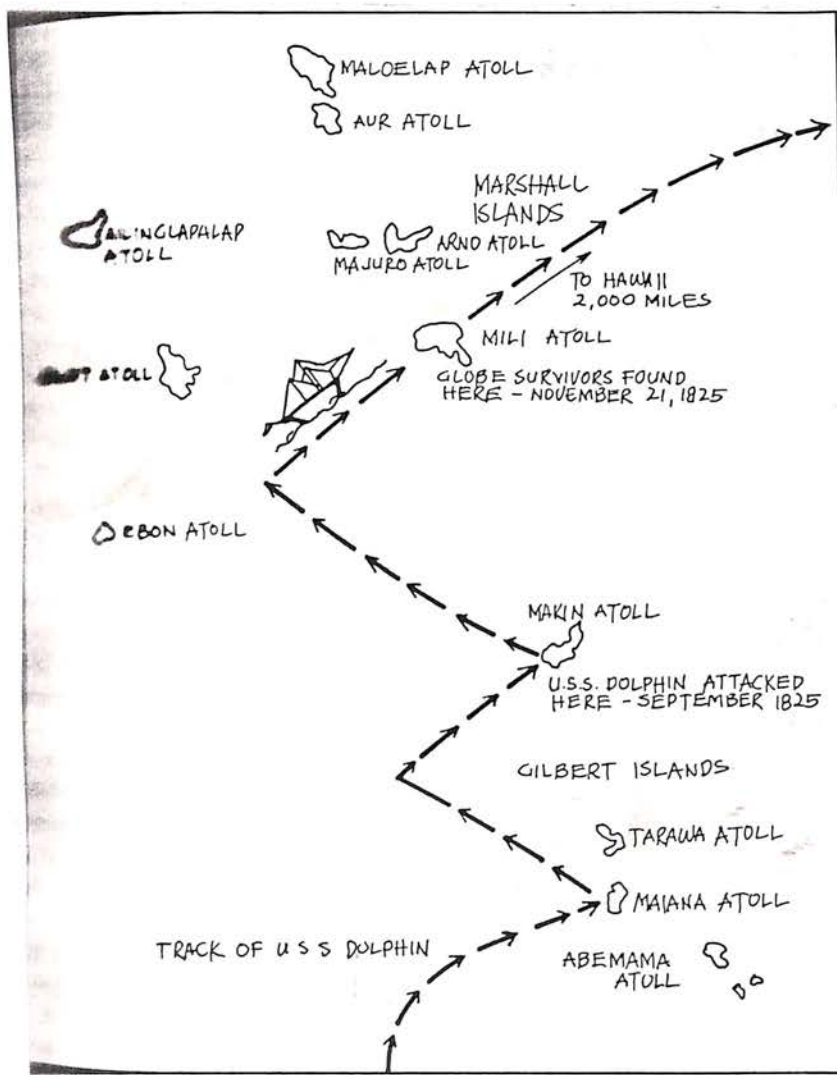 MALOELAP ATOLL
AUR ATOLL
MARSHALL
ISLANDS
AILINGLAPALAP
ATOLL
ARNO ATOLL
MAJURO ATOLL
TO HAWAII
2,000 MILES
MILI ATOLL
ATOLL
GLOBE SURVIVORS FOUND
HERE - NOVEMBER 21, 1825
EBON ATOLL
MAKIN ATOLL
U.S.S. DOLPHIN ATTACKED
HERE - SEPTEMBER 1825
GILBERT ISLANDS
TARAWA ATOLL
MAIANA ATOLL
TRACK OF U S S DOLPHIN
ABEMAMA
ATOLL